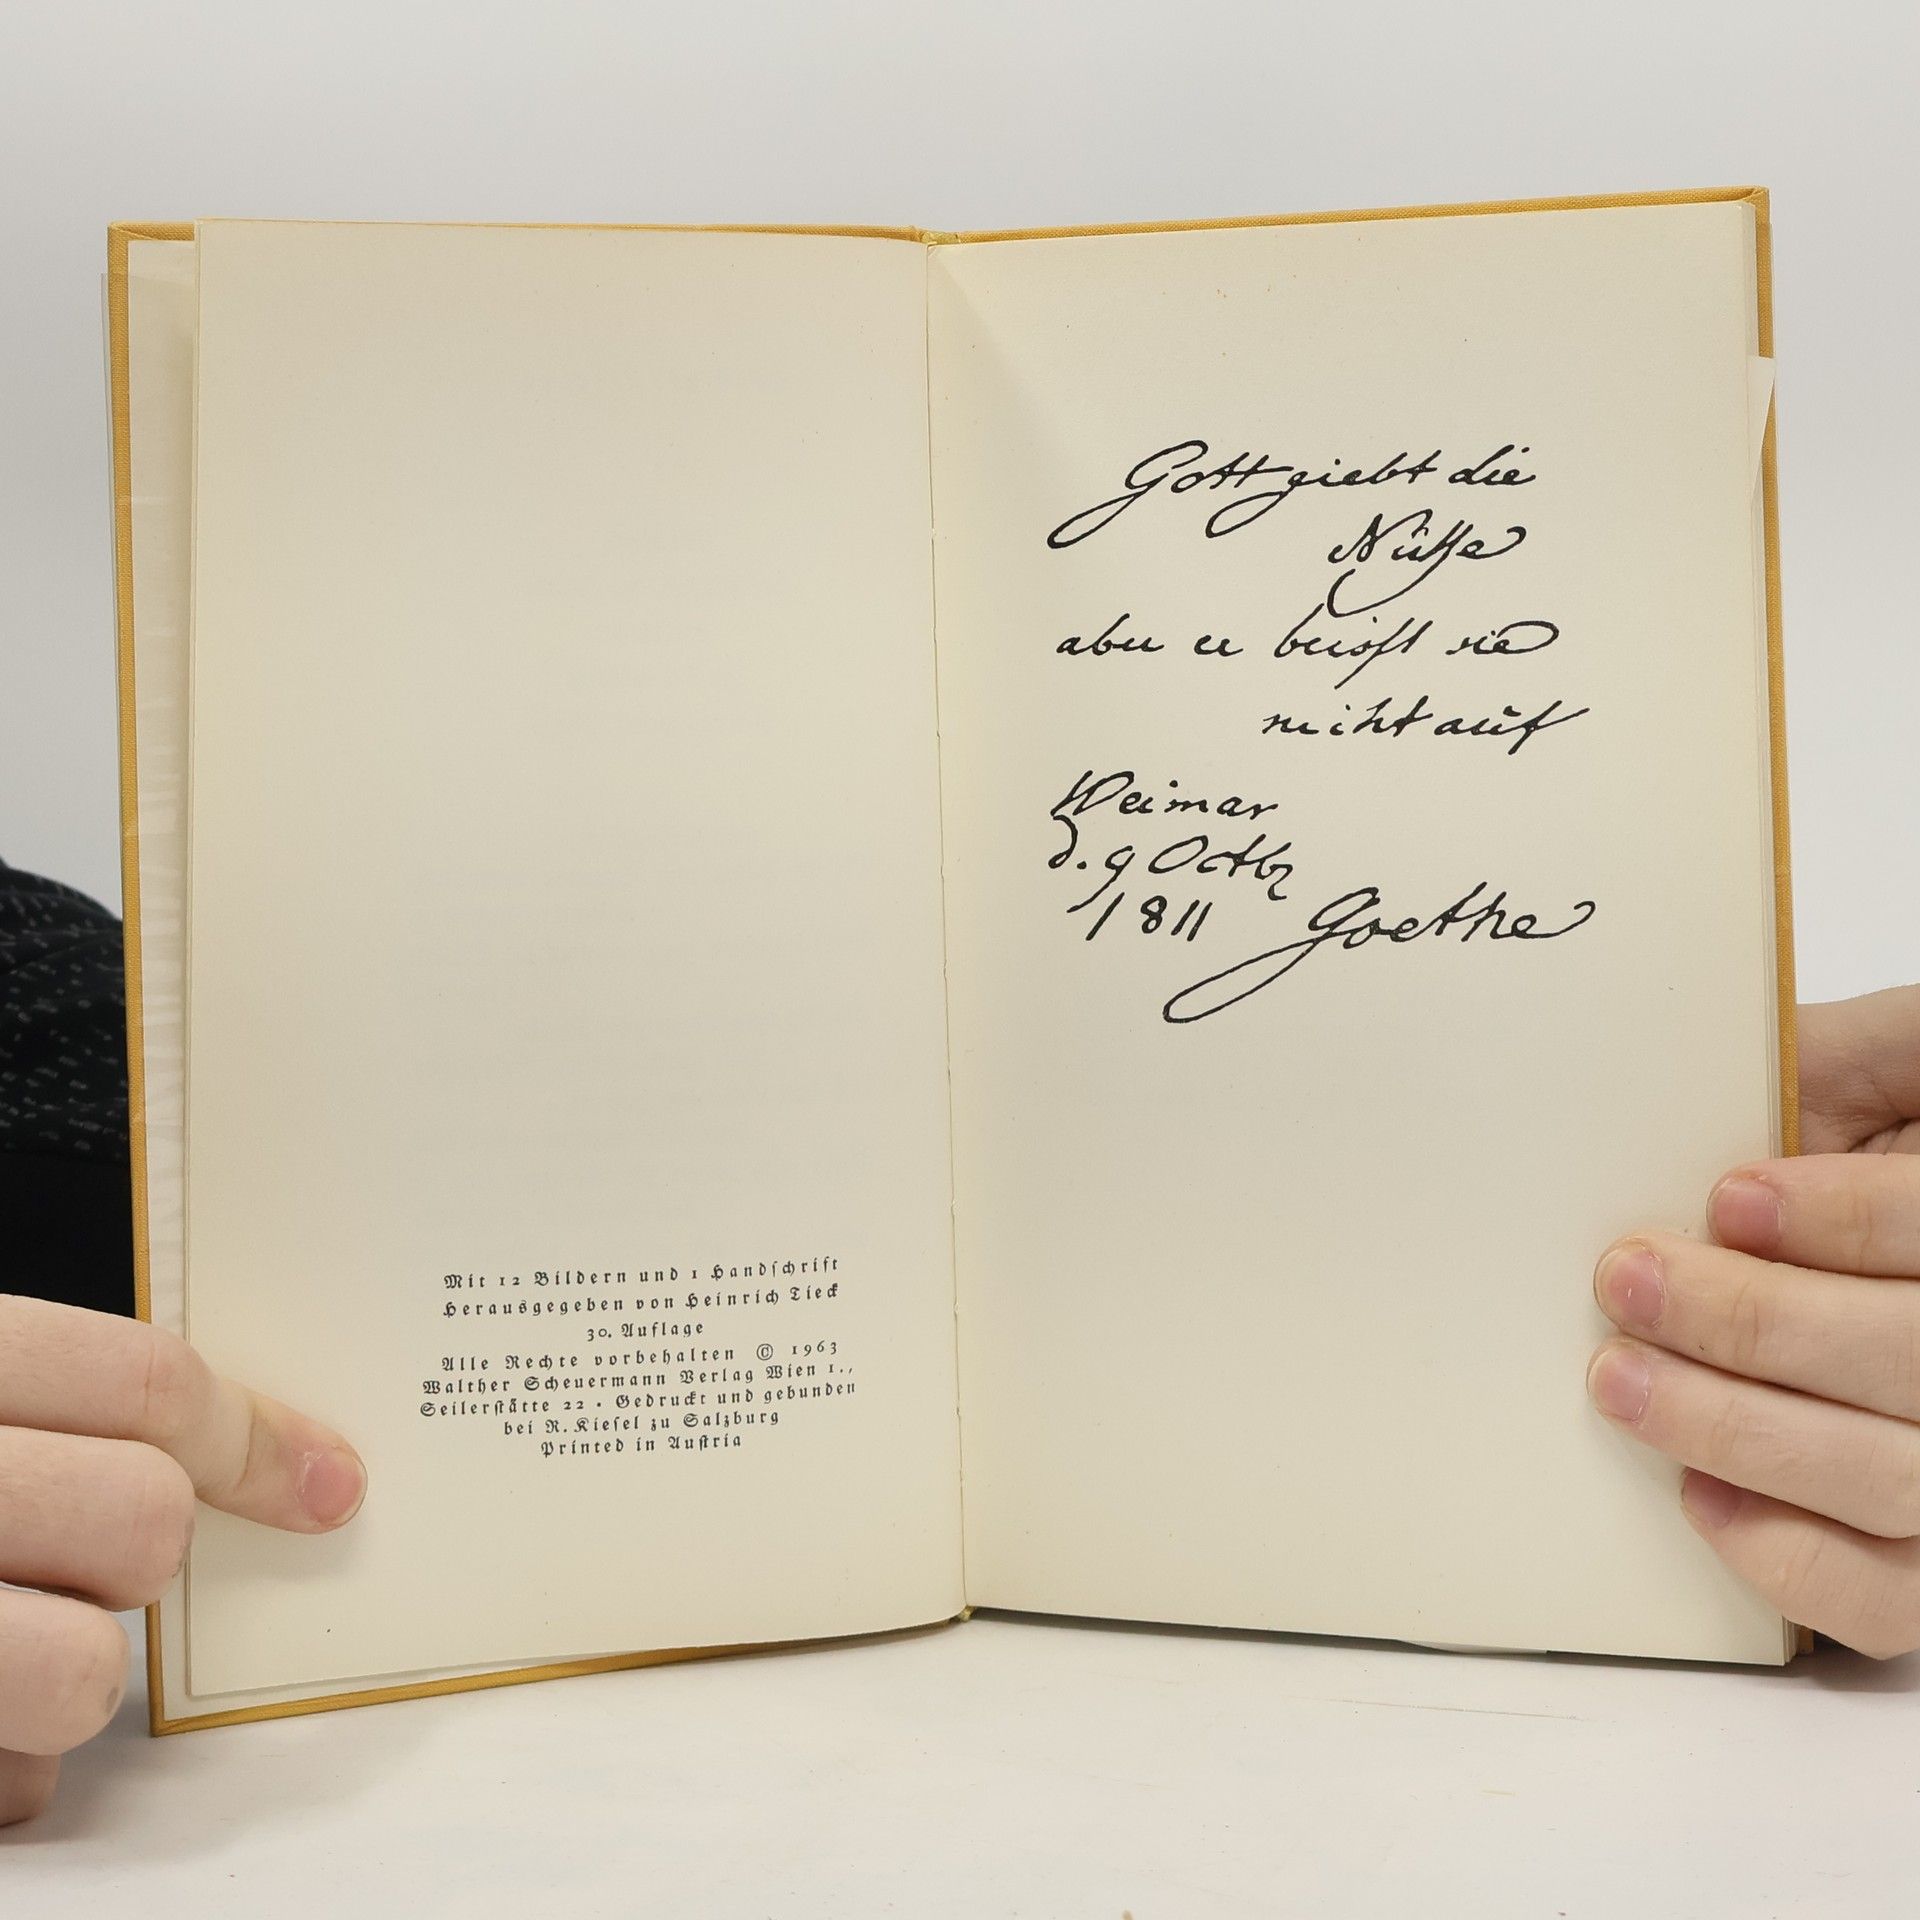 Mit 12 Bildern und 1 Handſchrift
Herausgegeben von Heinrich Tieck
30. Auflage
Alle Rechte vorbehalten © 1963
Walther Scheuermann Verlag Wien 1.,
Seilerſtätte 22 · Gedruckt und gebunden
bei R. Kieſel zu Salzburg
Printed in Auſtria
Gott giebt die
Nüſse
aber er beisſt sie
nicht auf
Weimar
d. 9 Octbr
1811 Goethe